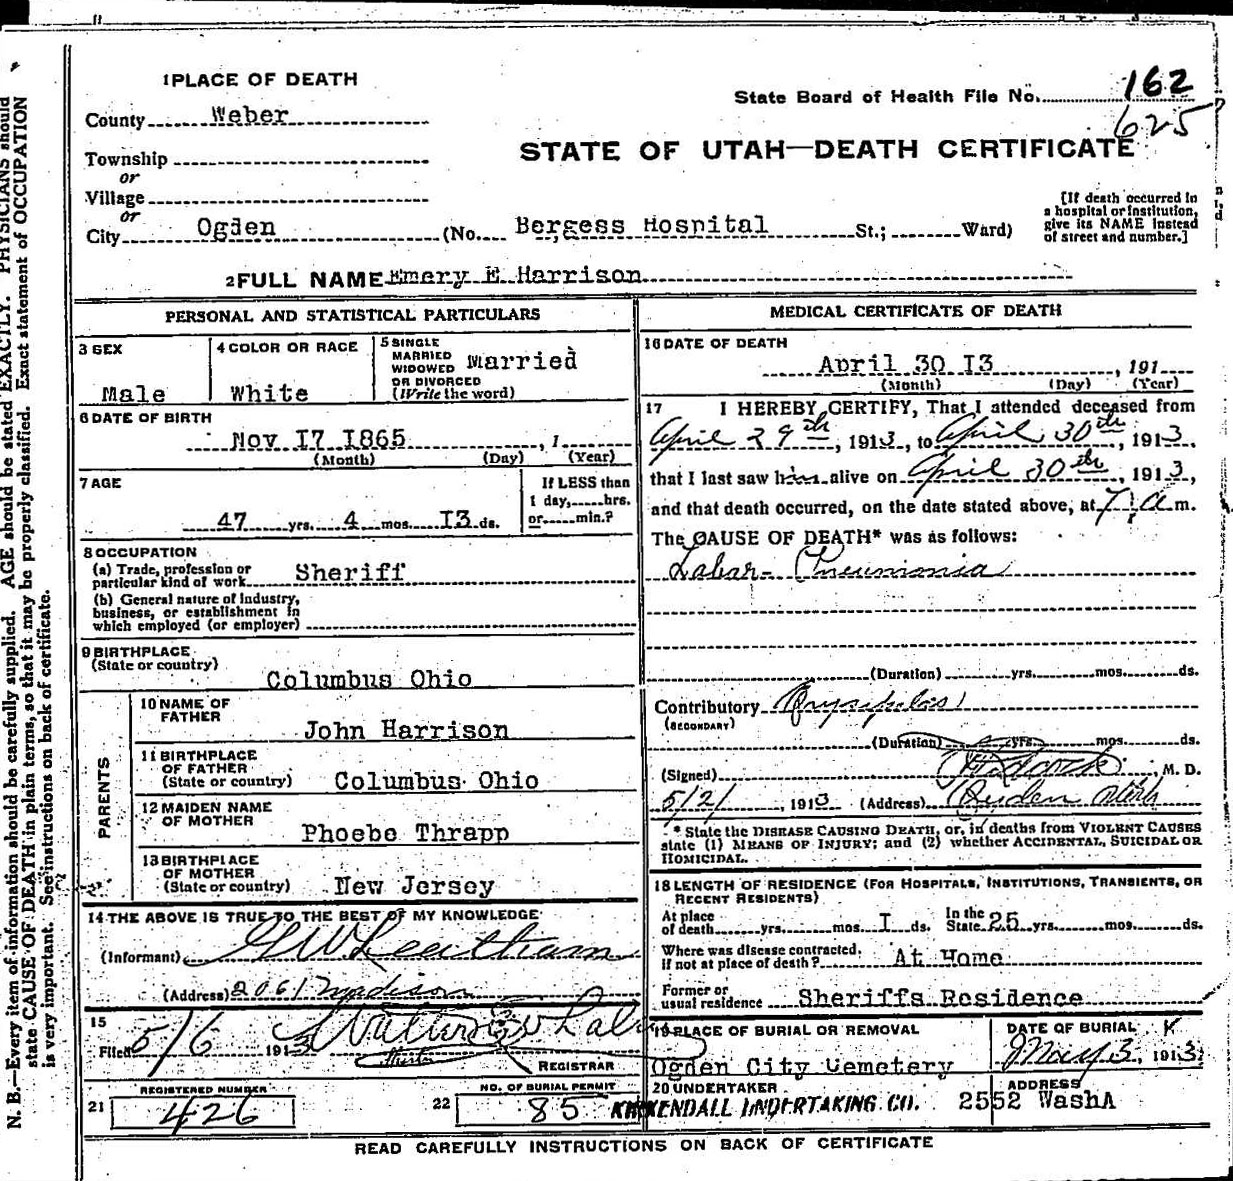 1 PLACE OF DEATH
State Board of Health File No. 162
625
County Weber
STATE OF UTAH—DEATH CERTIFICATE
Township
or
Village
or
City Ogden (No. Bergess Hospital St.; Ward)
[If death occurred in
a hospital or institution,
give its NAME instead
of street and number.]
2 FULL NAME Emery E Harrison
PERSONAL AND STATISTICAL PARTICULARS
3 SEX
Male
4 COLOR OR RACE
White
5 SINGLE
MARRIED
WIDOWED
OR DIVORCED
(Write the word)
Married
6 DATE OF BIRTH
Nov I7 I865, 1
(Month) (Day) (Year)
7 AGE
47 yrs. 4 mos. I3 ds.
If LESS than
1 day, hrs.
or min.?
8 OCCUPATION
(a) Trade, profession or
particular kind of work Sheriff
(b) General nature of industry,
business, or establishment in
which employed (or employer)
9 BIRTHPLACE
(State or country)
Columbus Ohio
PARENTS
10 NAME OF
FATHER
John Harrison
11 BIRTHPLACE
OF FATHER
(State or country) Columbus Ohio
12 MAIDEN NAME
OF MOTHER
Phoebe Thrapp
13 BIRTHPLACE
OF MOTHER
(State or country) New Jersey
14 THE ABOVE IS TRUE TO THE BEST OF MY KNOWLEDGE
(Informant) G W Leatham
(Address) 2061 Madison
15
Filed 5/6 1913
REGISTRAR
REGISTERED NUMBER
21 426
NO. OF BURIAL PERMIT
22 85
MEDICAL CERTIFICATE OF DEATH
16 DATE OF DEATH
April 30 I3, 191
(Month) (Day) (Year)
17 I HEREBY CERTIFY, That I attended deceased from
April 29th, 1913, to April 30th, 1913,
that I last saw him alive on April 30th, 1913,
and that death occurred, on the date stated above, at 7 a m.
The CAUSE OF DEATH* was as follows:
Labar- Pneumonia
(Duration) yrs. mos. ds.
Contributory
(SECONDARY)
(Duration) yrs. mos. ds.
(Signed) M. D.
5/2/, 1913 (Address) Ogden Utah
* State the DISEASE CAUSING DEATH, or, in deaths from VIOLENT CAUSES
state (1) MEANS OF INJURY; and (2) whether ACCIDENTAL, SUICIDAL OR
HOMICIDAL.
18 LENGTH OF RESIDENCE (FOR HOSPITALS, INSTITUTIONS, TRANSIENTS, OR
RECENT RESIDENTS)
At place
of death yrs. mos. I ds.
In the
State 25 yrs. mos. ds.
Where was disease contracted,
if not at place of death? At Home
Former or
usual residence Sheriffs Residence
19 PLACE OF BURIAL OR REMOVAL
Ogden City Cemetery
DATE OF BURIAL
May 3, 1913
20 UNDERTAKER
KIRKENDALL UNDERTAKING CO.
ADDRESS
2552 WashA
READ CAREFULLY INSTRUCTIONS ON BACK OF CERTIFICATE
N. B.—Every item of information should be carefully supplied. AGE should be stated EXACTLY. PHYSICIANS should
state CAUSE OF DEATH in plain terms, so that it may be properly classified. Exact statement of OCCUPATION
is very important. See instructions on back of certificate.